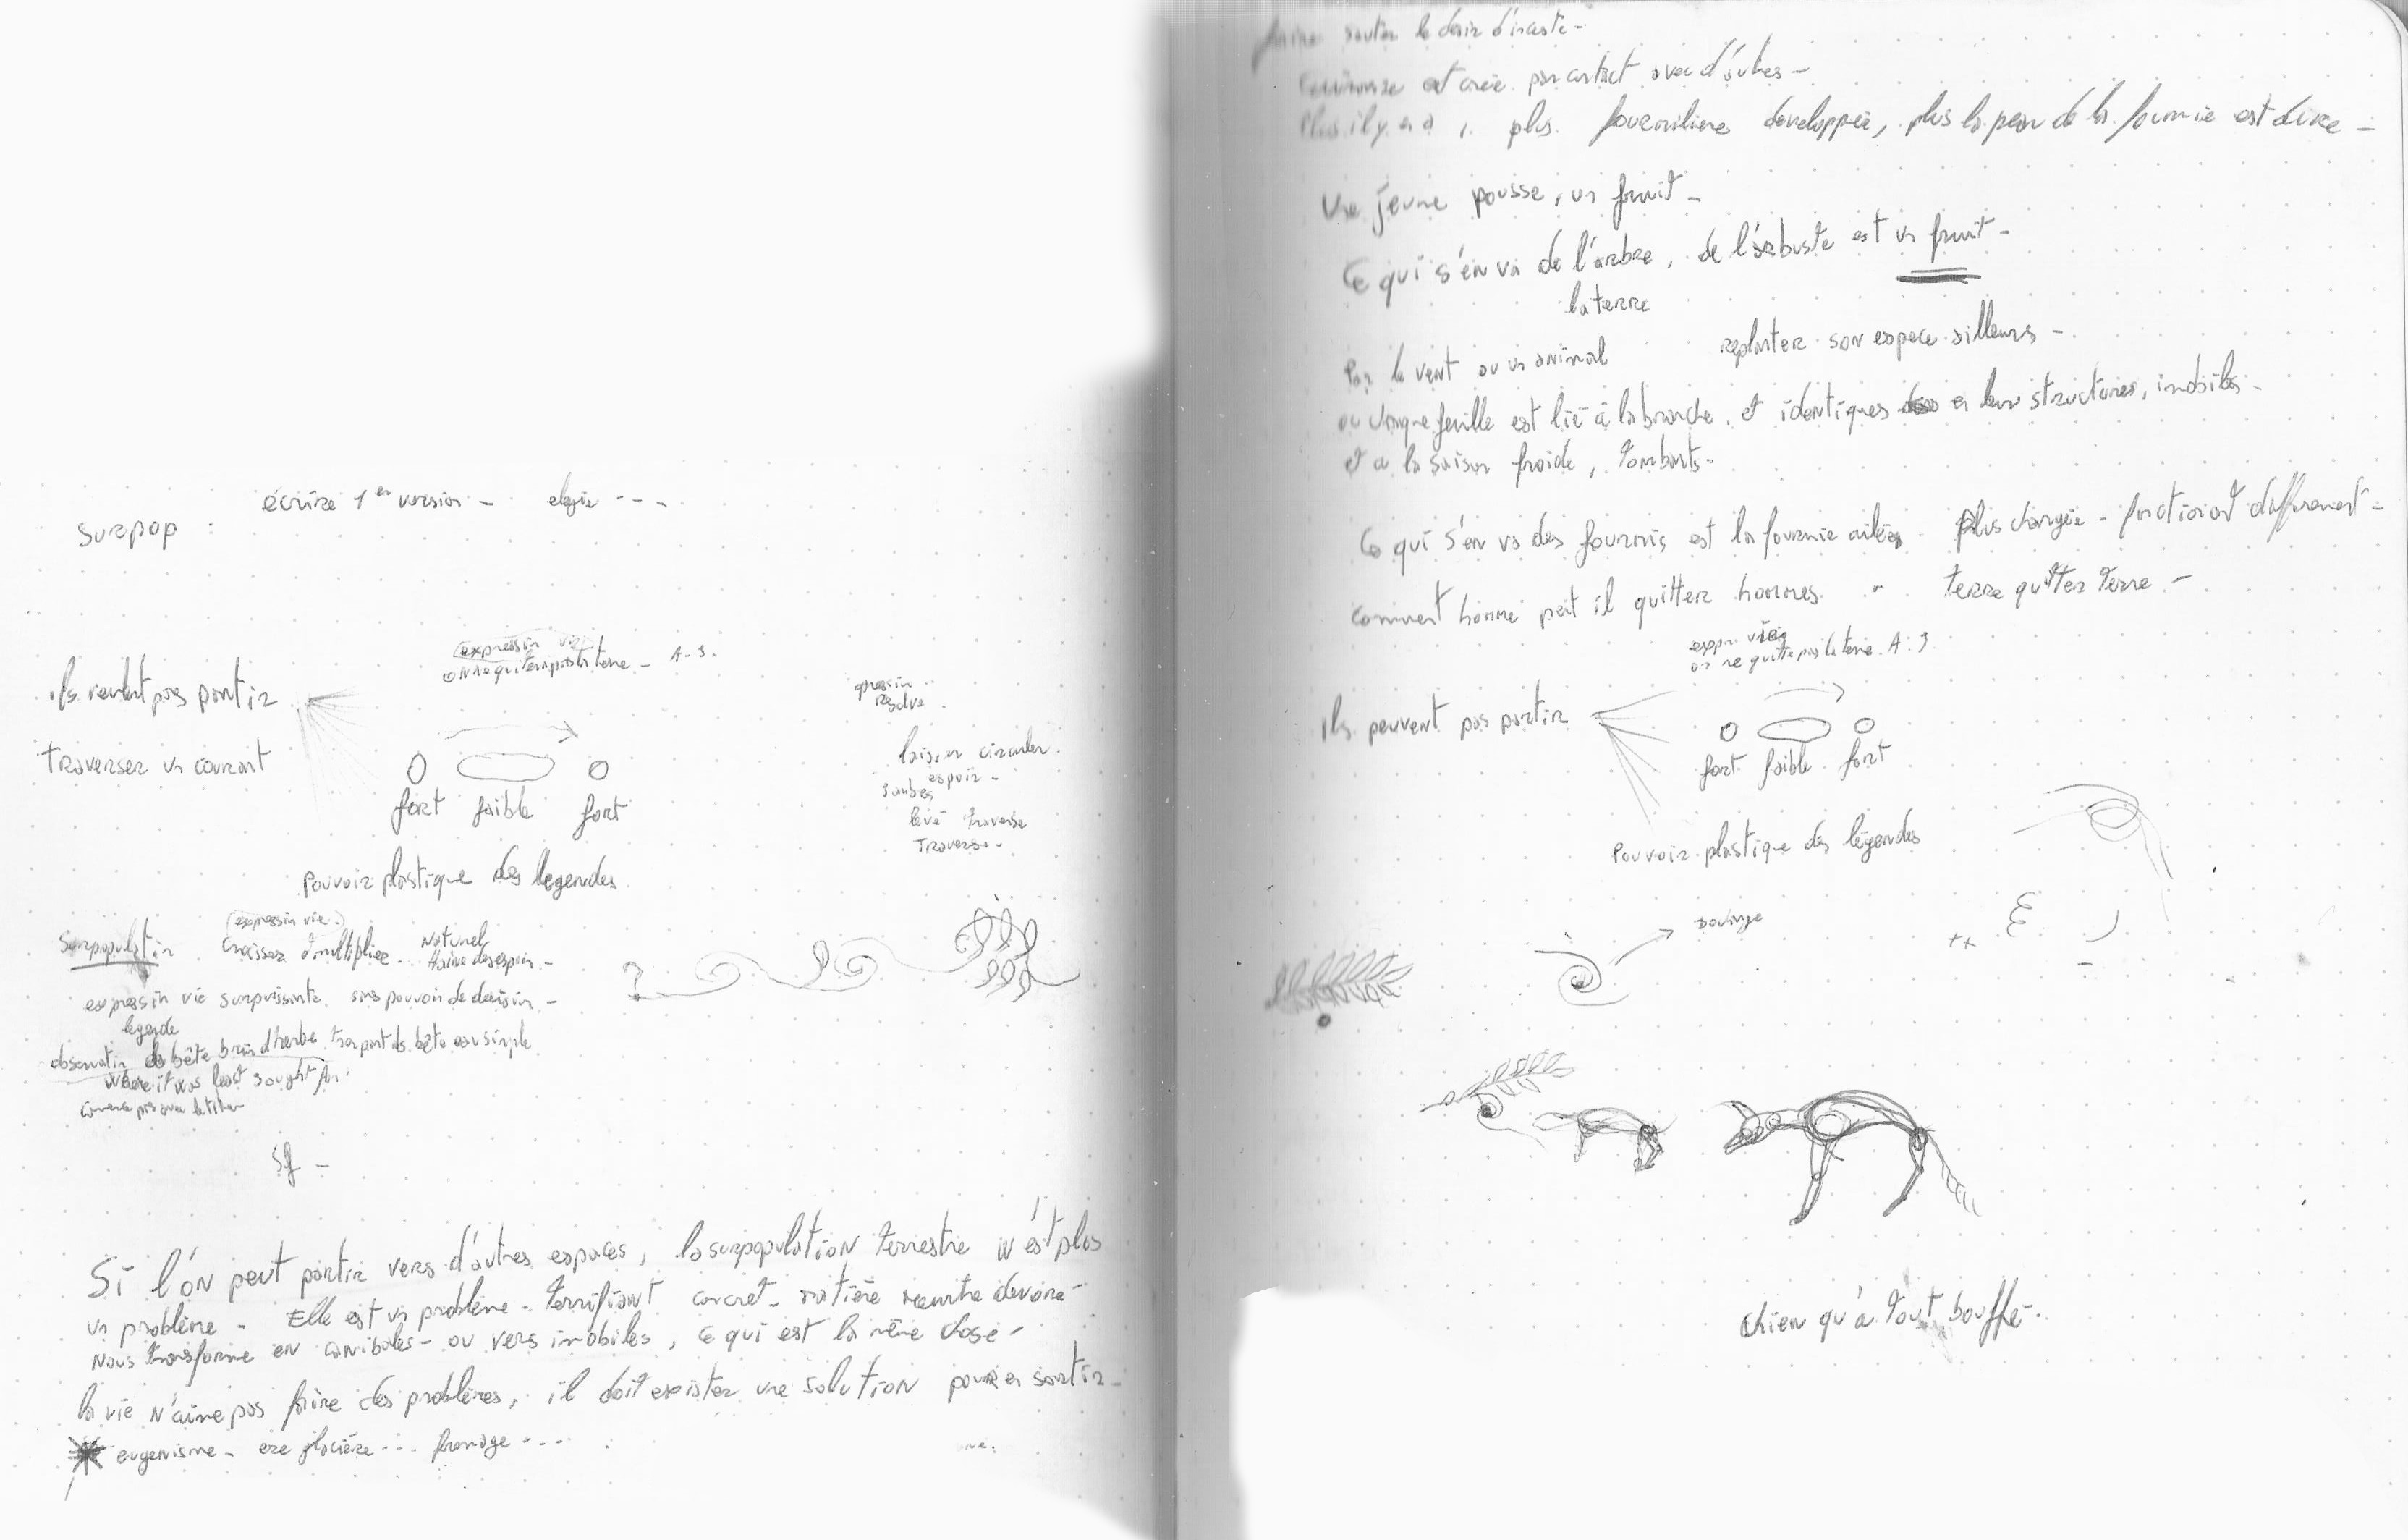 écrire 1er version - elegie - - -
surpop :
(expression vie)
on ne quittera pas la terre - A-S.
ils veulent pas partir
Traverser un courant
fort faible fort
Pouvoir plastique des legendes
laisser circuler.
espoir -
levé traverse
Traverse
(expression vie)
Surpopulation Croissez & multipliez - Naturel
expression vie surpuissante. sans pouvoir de decision -
legende
observation de bête brin d'herbe.
Where it was least sought for.
sf -
Si l'on peut partir vers d'autres espaces, la surpopulation terrestre n'est plus
un problème - Elle est un problème - terrifiant concret - matière meurtre devore -
Nous transforme en canibales - ou vers imobiles, ce qui est la même chose -
la vie n'aime pas faire des problèmes, il doit exister une solution pour en sortir -
eugenisme - ere glacière - - - fromage - - -
sauter le desir d'inceste -
est créé par contact avec d'autres -
Plus il y en a , plus fourmiliere developpée, plus la peau de la fourmie est dure -
Une jeune pousse, un fruit -
Ce qui s'en va de l'arbre, de l'arbuste est un fruit -
la terre
Par le vent ou un animal replanter son espece ailleurs -
ou chaque feuille est lié à la branche, et identiques en leur structures, imobiles -
et a la saison froide, tombants -
Ce qui s'en va des fourmis est la fourmie ailée. Plus chargée - fonctionant differement -
Comment homme peut il quitter hommes. " terre quitter terre -
expr. vie
on ne quitte pas la terre. A:S
ils peuvent pas partir
fort faible fort
Pouvoir plastique des légendes
Chien qu'a tout bouffé -